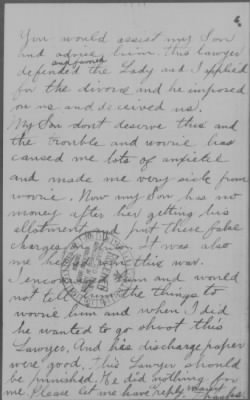 6.
You would assist my Son
and advice him. this lawyer
and joined
defended the Lady and I applied
for the divorce and he imposed
on us and deceived us.
My Son dont deserve this and
the trouble and worrie has
caused me lots of
and made me very sick from
worrie. Now my Son has no
money after her getting his
allotment and put these false
charges him. It was also
me this war.
I him and would
not tell him the things to
worrie him and when I did
he wanted to go shoot this
Lawyer. And his discharge paper
were good. this Lawyer should
be punished. He did nothing for
me. Please let me have reply